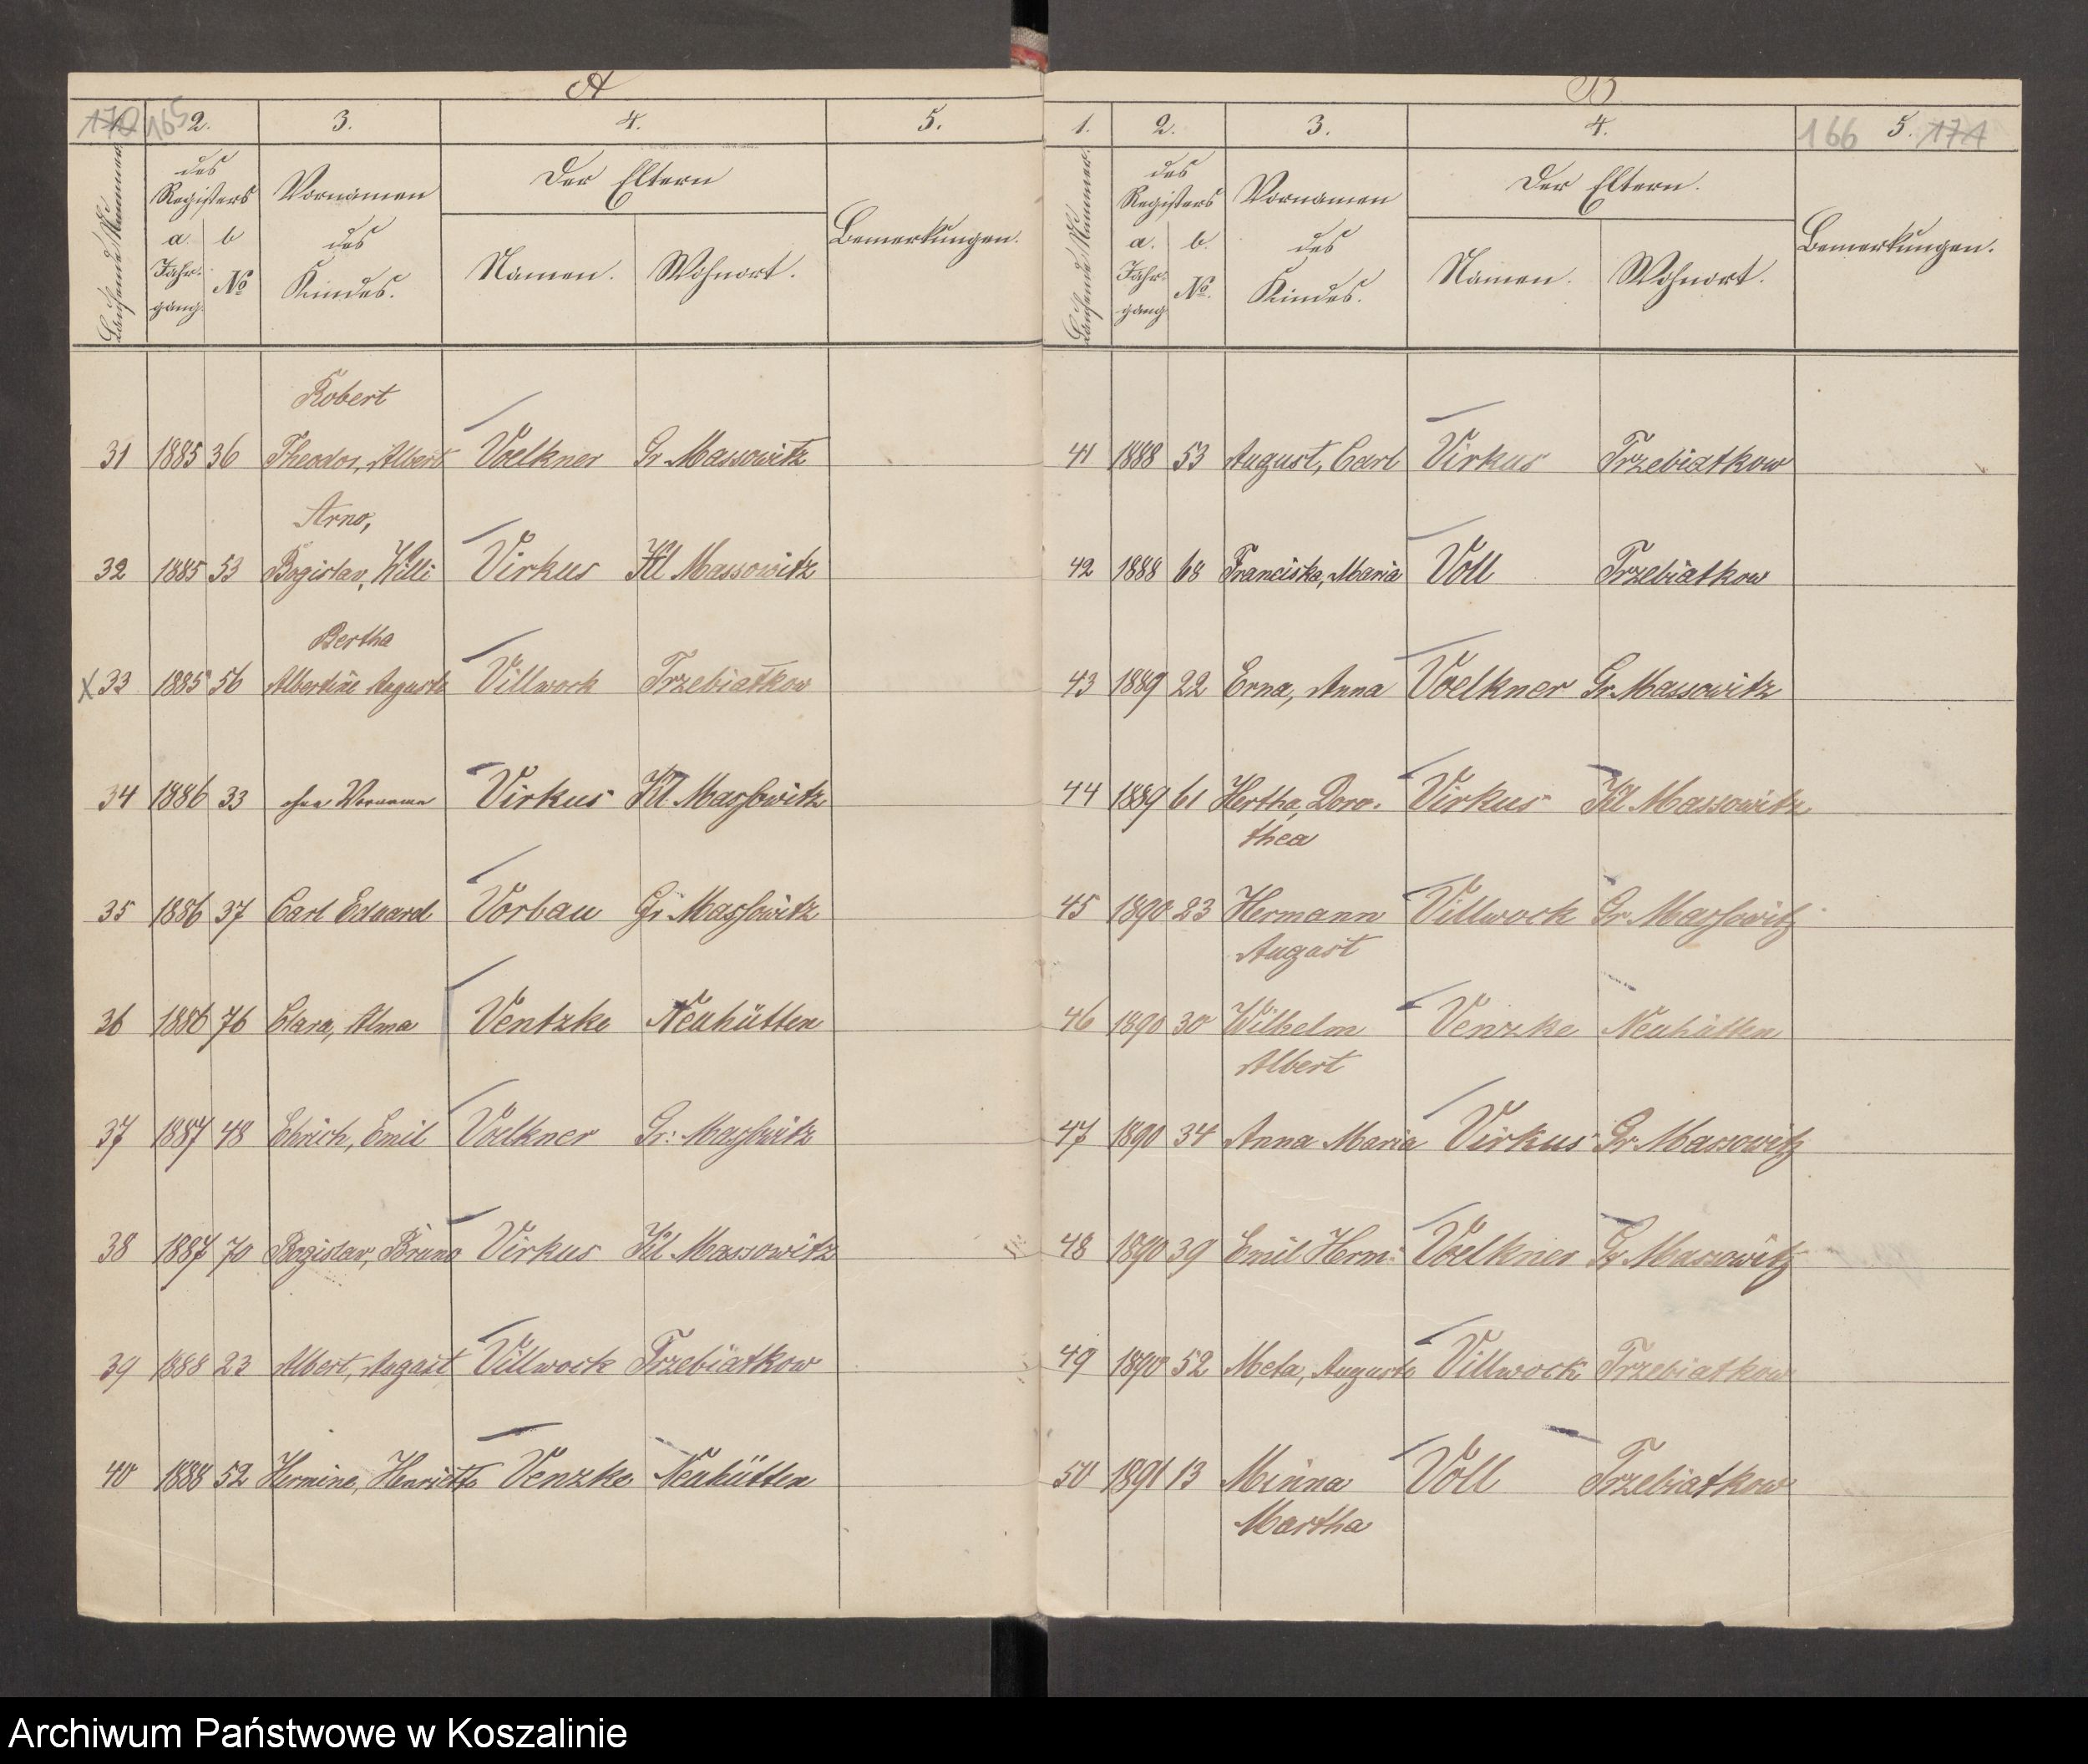 A
1. 2. 3. 4. 5.
170 165
Laufende Nummer
des Registers
a. Jahrgang
b №
Vornamen des Kindes.
Der Eltern
Namen. Wohnort.
Bemerkungen.
Robert
31 1885 36 Theodor, Albert Voelkner Gr Massowitz
Arno,
32 1885 53 Bogislav, Willi Virkus Kl Massowitz
Bertha
x 33 1885 56 Albertine Auguste Villwock Trzebiatkow
34 1886 33 ohne Vorname Virkus Kl Massowitz
35 1886 37 Carl Eduard Vorbau Gr Massowitz
36 1886 76 Clara, Alma Ventzke Neuhütten
37 1887 48 Ehrich, Emil Voelkner Gr: Massowitz
38 1887 70 Bogislav, Bruno Virkus Kl Massowitz
39 1888 23 Albert, August Villwock Trzebiatkow
40 1888 52 Hermine, Henriette Venzke Neuhütten
B
1. 2. 3. 4. 5.
166 171
Laufende Nummer.
des Registers
a. Jahrgang
b. №.
Vornamen des Kindes.
Der Eltern.
Namen. Wohnort.
Bemerkungen.
41 1888 53 August, Carl Virkus Trzebiatkow
42 1888 68 Franciska, Maria Voll Trzebiatkow
43 1889 22 Erna, Anna Voelkner Gr. Massowitz
44 1889 61 Hertha, Doro- Virkus Kl Massowitz
thea
45 1890 23 Hermann Villwock Gr. Massowitz
August
46 1890 30 Wilhelm Venzke Neuhütten
Albert
47 1890 34 Anna Maria Virkus Gr Massowitz
48 1890 39 Emil Herm: Voelkner Gr Massowitz
49 1890 52 Meta, Auguste Villwock Trzebiatkow
50 1891 13 Minna Voll Trzebiatkow
Martha
Archiwum Państwowe w Koszalinie